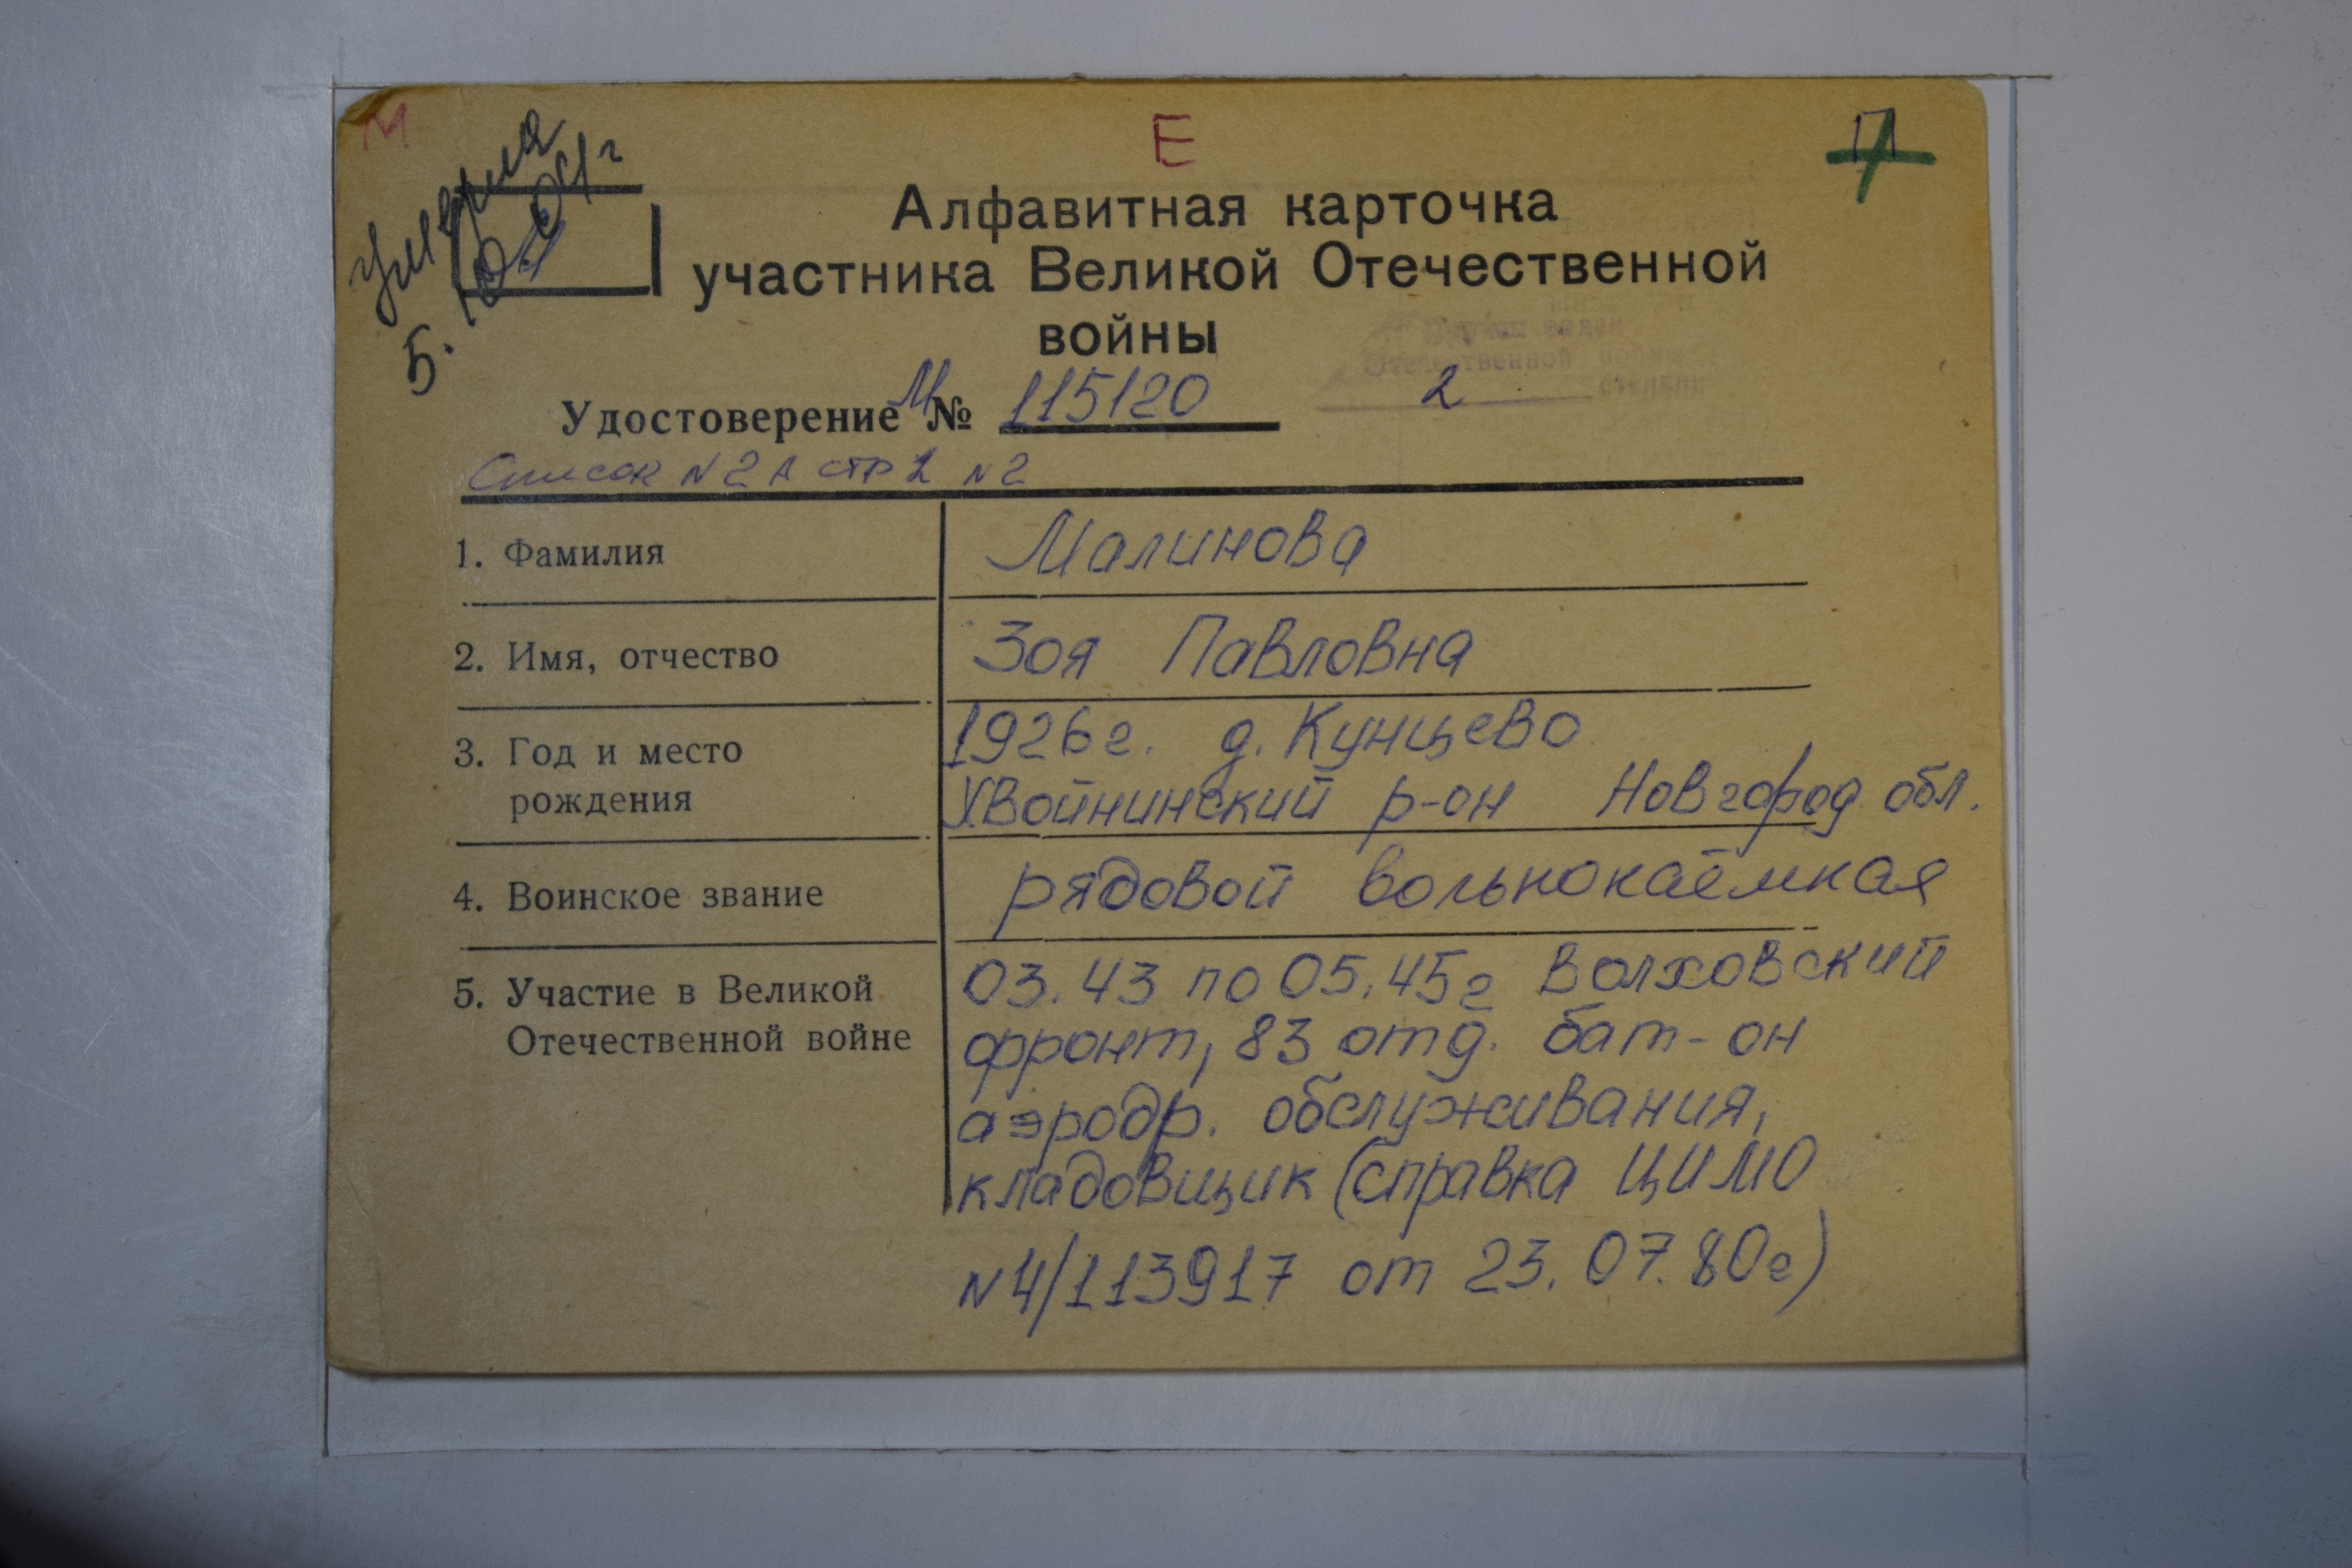 М
Е
П
умерла
Алфавитная карточка
участника Великой Отечественной
войны
Удостоверение М № 115120
Отечественной войны
2 степени
Список N 2А стр 1 N 2
1. Фамилия Малинова
2. Имя, отчество Зоя Павловна
3. Год и место 1926г. д. Кунцево
рождения Хвойнинский р-он Новгород обл.
4. Воинское звание рядовой вольнокаёмная
5. Участие в Великой 03.43 по 05.45г Волховский
Отечественной войне фронт, 83 отд. бат-он
аэродр. обслуживания,
кладовщик (справка ЦИМО
N4/113917 от 23.07.80г)